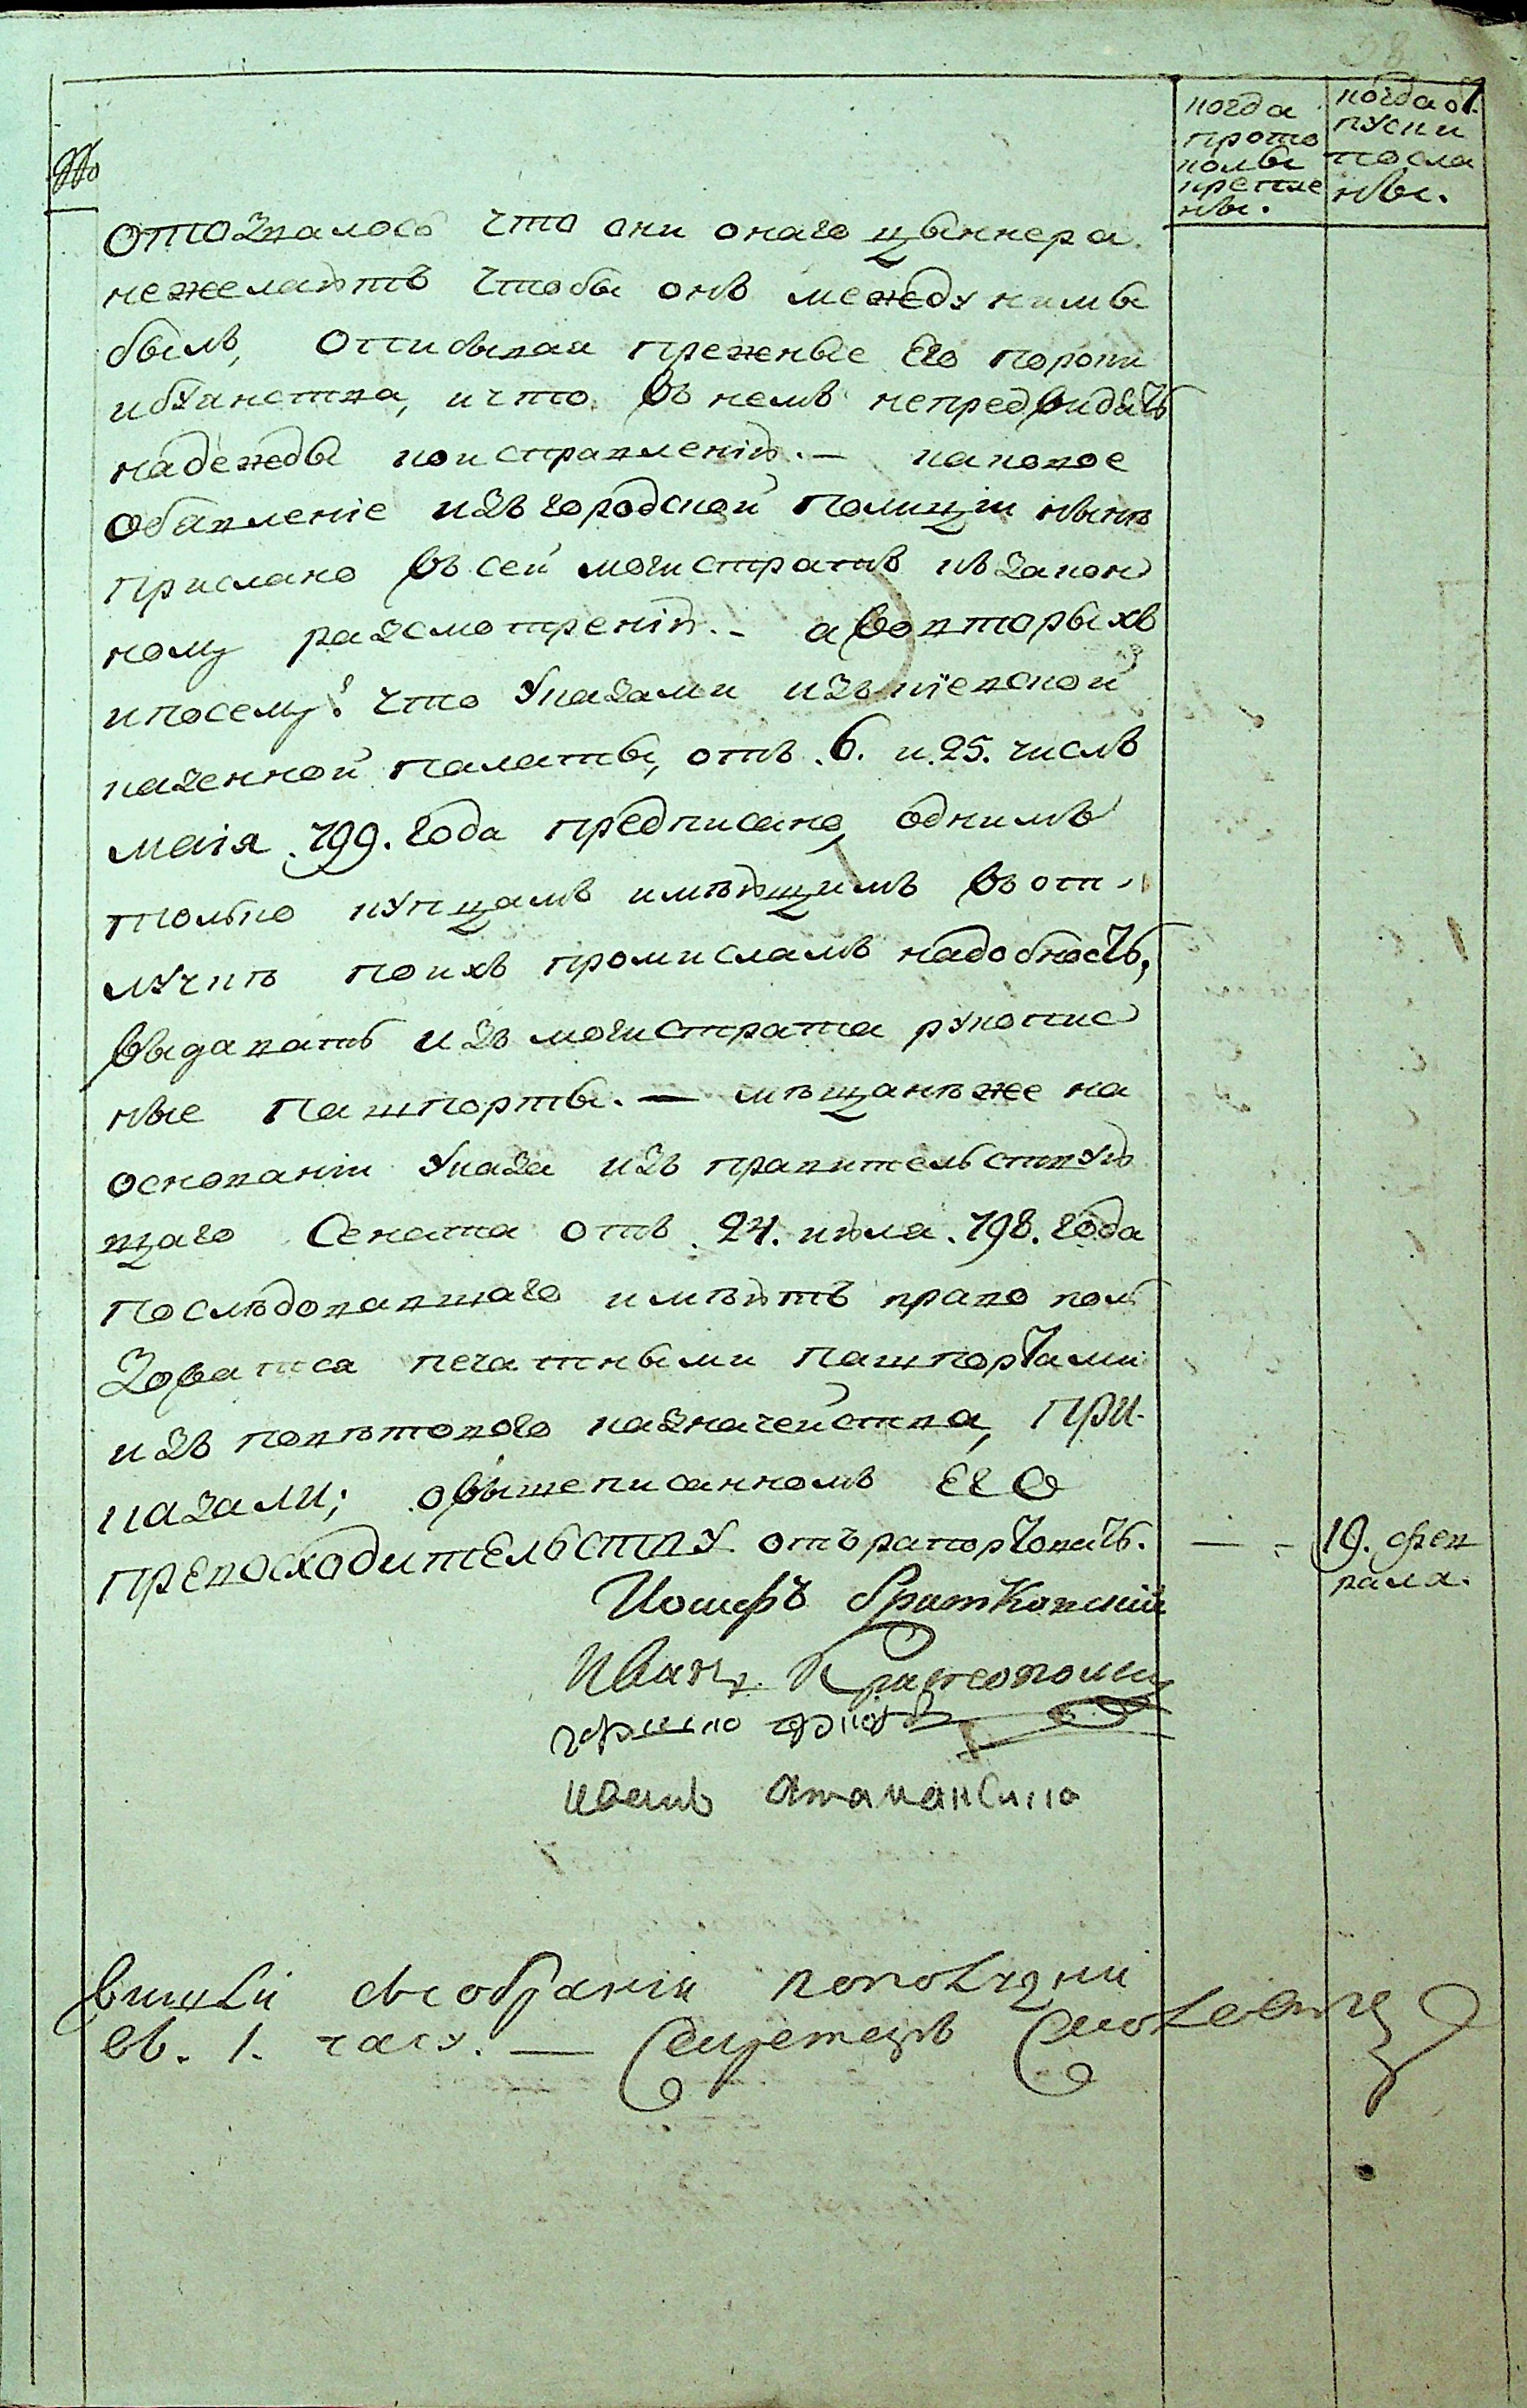 когда
прото
колы
крепле
ны.
когда от
пуски
посла
ны.
№
отозвалось что они онаго цвыннера
нежелаютъ чтобы онъ между ними
былъ, описывая прежные Его пороки
ибуинства, ичто въ немъ непредвидѣть
надежды коисправленію. — каковое
обавленіе изъ городской полиціи нынѣ
прислано въ сей магистратъ къ закон
ному разсмотренію. — а вовторыхъ
ипосему: что Указами изъ кіевской
казенной палаты, отъ .6. и .25. числъ
маія .799. года предписано, однимъ
только купцамъ имѣющимъ въ от-
лучкѣ по ихъ промисламъ надобность,
выдавать изъ магистрата рукопис
ные пашпорты. — мѣщанѣ же на
основаніи Указа изъ правительствую
щаго Сената отъ .24. июля .798. года
послѣдовавшаго имѣютъ право поль
зоватся печатными пашпортами
изъ повѣтового казначейства, При-
казали; овышеписанномъ ЕГО
ПРЕВОСХОДИТЕЛЬСТВУ отърапортовать.
19. фев
раля.
Иосифъ
Иванъ
Иванъ
въ. 1. часу. — Секретарь